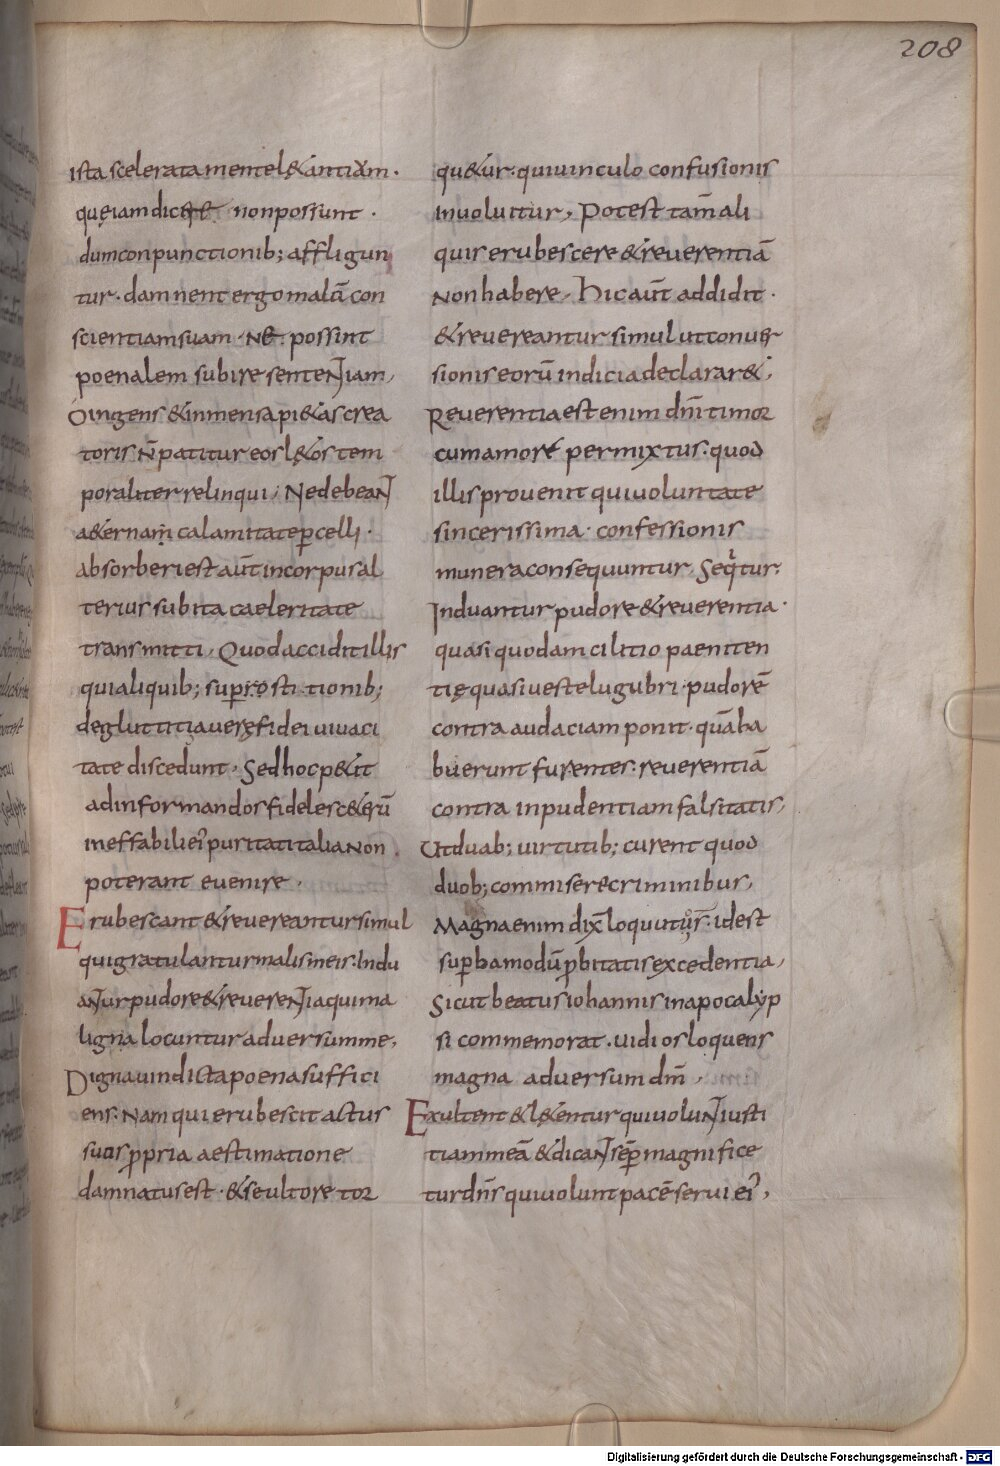 208
ista scelerata mente l&antiam.
quę iam dic non possunt.
dum conpunctionib; affligun
tur. damnent ergo malā con
scientiam suam. NE possint
poenalem subire sententiam,
O ingens & inmensa pi&as crea
toris n̄ patitur eos l&os tem
poraliter relinqui, Ne debeant
a&ernam calamitate ꝑcelli.
absorberi est aūt incorpus al
terius subita caeleritate
transmitti, Quod accidit illis
qui aliquib; superstitionib;
degluttiti a verę fidei vivaci
tate discedunt, Sed hoc p&it
ad informandos fideles c&erū
ineffabili ei' puritati talia non
poterant evenire.
Erubescant & revereantur simul
qui gratulantur malis meis. Indu
antur pudore & reverentia qui ma
ligna locuntur adversum me,
Digna vindicta poena suffici
ens. Nam qui erubescit actus
suos ꝓpria aestimatione
damnatus est. & se ultore tor
qu&ur. qui vinculo confusionis
involvitur, Potest tam̄ ali
quis erubescere & reverentiā
non habere, Hic aūt addidit.
& revereantur simul ut conver
sionis eorū indicia declarar&,
Reverentia est enim dn̄i timor
cum amore permixtus. quod
illis provenit qui voluntate
sincerissima. confessionis
munera consequuntur, Seqͥtur.
Induantur pudore & reverentia.
quasi quodam cilitio paeniten
tię quasi veste lugubri. pudorē
contra audaciam ponit. quā ha
buerunt furentes. reverentiā
contra inpudentiam falsitatis,
Ut duab; virtutib; curent quod
duob; commisere criminibus,
Magna enim dix̄ loquutur̄. id est
suꝑba modū ꝓbitatis excedentia,
Sicut beatus iohannis in apocalyp
si commemorat. vidi os loquens
magna adversum dn̄m,
Exultent & l&entur qui volunt iusti
tiam meā & dicant sēꝑ magnifice
tur dn̄s qui volunt pacē servi ei',
Digitalisierung gefördert durch die Deutsche Forschungsgemeinschaft - DFG